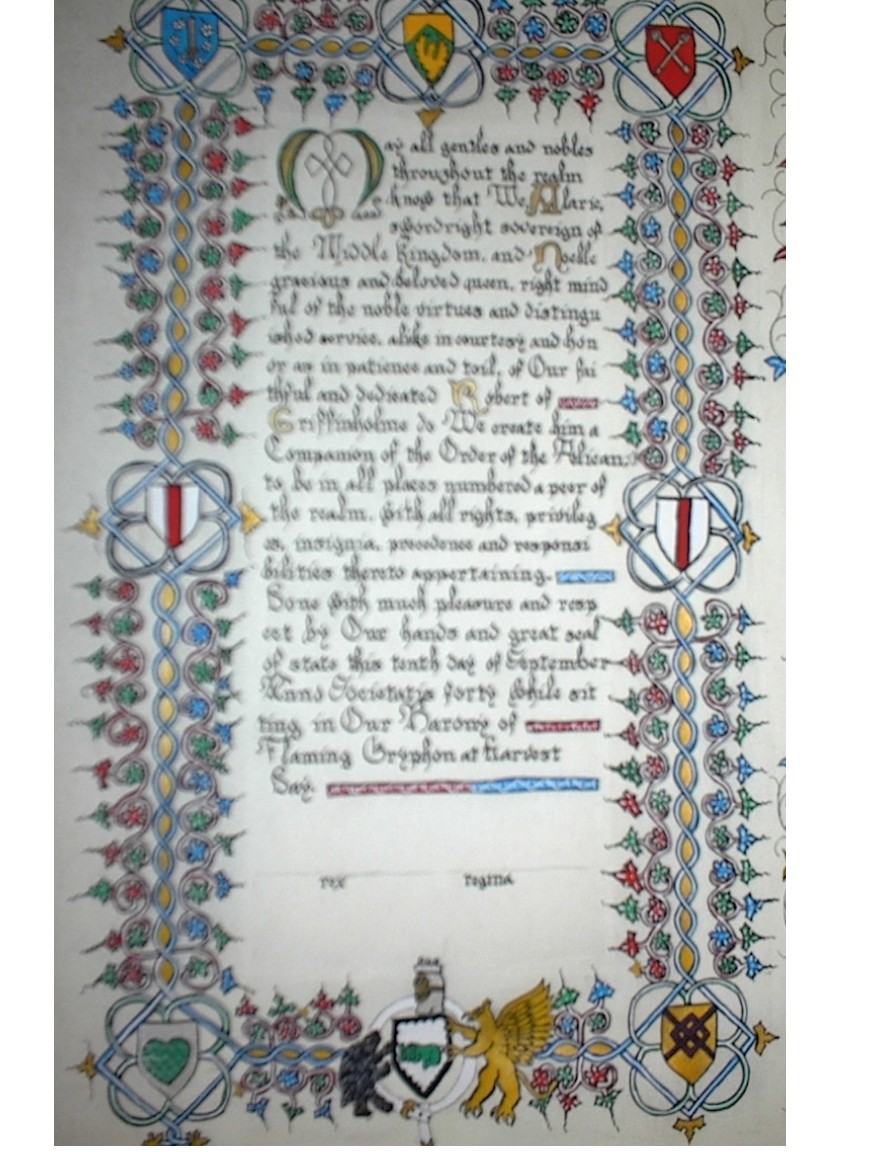 May all gentles and nobles
throughout the realm
know that We, Alaric,
swordright sovereign of
the Middle Kingdom, and Noelle
gracious and beloved queen, right mind
ful of the noble virtues and distingu
ished service, alike in courtesy and hon
or as in patience and toil, of Our fai
thful and dedicated Robert of
Griffinholme do We create him a
Companion of the Order of the Pelican,
to be in all places numbered a peer of
the realm, with all rights, privileg
es, insignia, precedence and responsi
bilities thereto appertaining.
Done with much pleasure and resp
ect by Our hands and great seal
of state this tenth day of September
Anno Societatis forty while sit
ting in Our Barony of
Flaming Gryphon at Harvest
Day.
rex regina